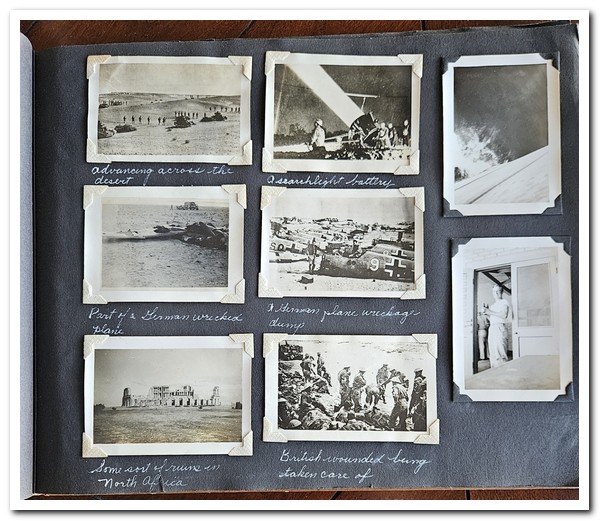 advancing across the
desert
A searchlight battery
Part of a German wrecked
plane
9
A German plane wreckage
dump
Some sort of ruins in
North Africa
British wounded being
taken care of